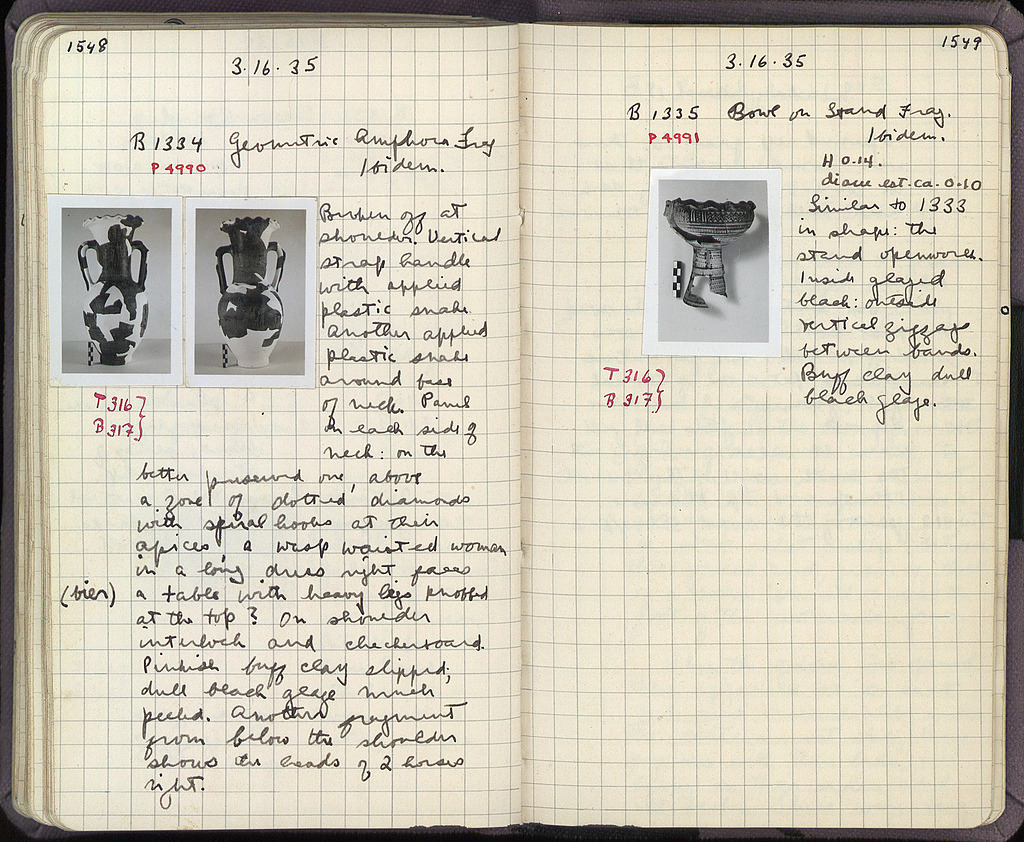 1548
3.16.35
B 1334 Geometric Amphora Frag
P 4990
Ibidem.
Broken off at
shoulder. Vertical
strap handle
with applied
plastic snake.
Another applied
plastic snake
around base
of neck. Panel
on each side of
neck: on the
T 316
B 317
better preserved one, above
a zone of dotted diamonds
with spiral hooks at their
apices, a wasp waisted woman
in a long dress right faces
(bier) a table with heavy legs knobbed
at the top? On shoulder
interlock and checkerboard.
Pinkish buff clay slipped;
dull black glaze much
peeled. Another fragment
from below the shoulder
shows the heads of 2 horses
right.
1549
3.16.35
B 1335 Bowl on Stand Frag.
P 4991
Ibidem.
H 0.14.
diam est. ca. 0.10
Similar to 1333
in shape: the
stand openwork.
Inside glazed
black: outside
vertical zigzags
between bands.
Buff clay dull
black glaze.
T 316
B 317